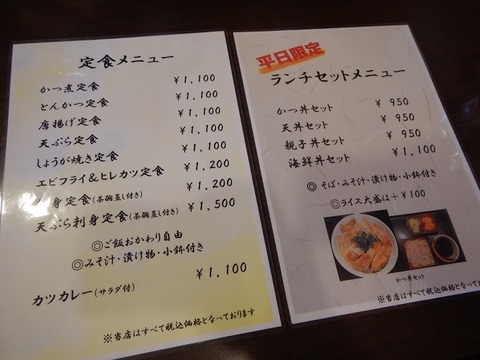 定食メニュー
かつ煮定食 ¥1,100
とんかつ定食 ¥1,100
唐揚げ定食 ¥1,100
天ぷら定食 ¥1,100
しょうが焼き定食 ¥1,100
エビフライ&ヒレカツ定食 ¥1,200
身定食(茶碗蒸し付き) ¥1,200
天ぷら刺身定食(茶碗蒸し付き) ¥1,500
◎ご飯おかわり自由
◎みそ汁・漬け物・小鉢付き
カツカレー(サラダ付) ¥1,100
※当店はすべて税込価格となっております
平日限定
ランチセットメニュー
かつ丼セット ¥ 950
天丼セット ¥ 950
親子丼セット ¥ 950
海鮮丼セット ¥1,100
◎そば・みそ汁・漬け物・小鉢付き
◎ライス大盛は+¥100
かつ丼セット
※当店はすべて税込価格となっております